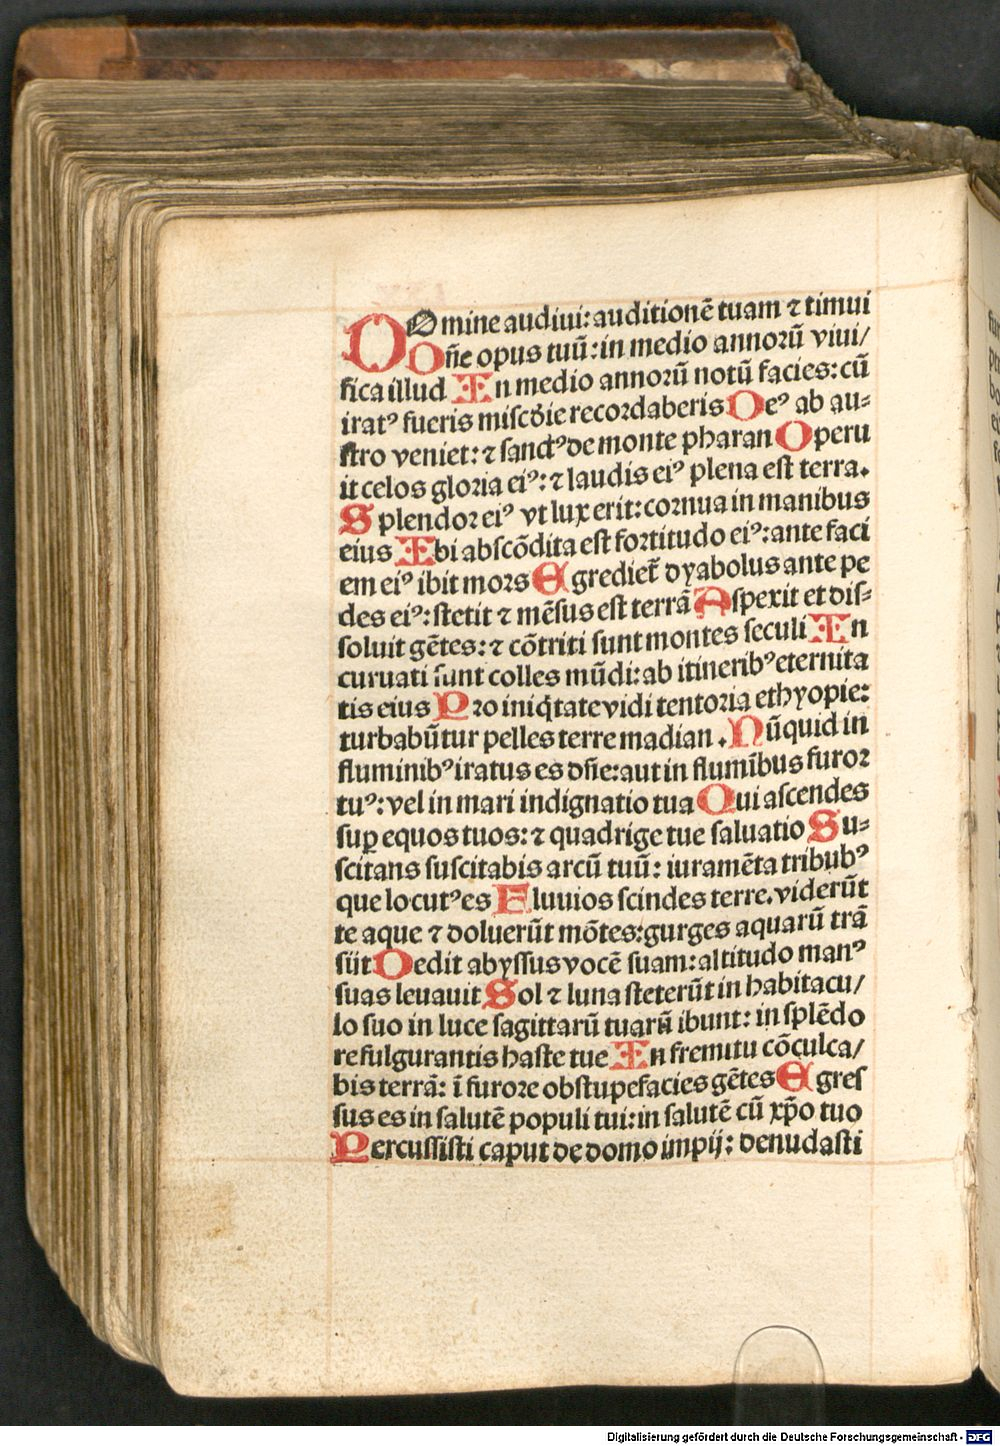 DOmine audiui: auditionē tuam ⁊ timui
Dn̄e opus tuū: in medio annorū viui/
fica illud In medio annorū notū facies: cū
iratꝰ fueris miscd̄ie recordaberis Deꝰ ab au⸗
stro veniet: ⁊ sanctꝰ de monte pharan Operu
it celos gloria eiꝰ: ⁊ laudis eiꝰ plena est terra.
Splendor eiꝰ vt lux erit: cornua in manibus
eius Ibi abscōdita est fortitudo eiꝰ: ante faci
em eiꝰ ibit mors Egrediet᷑ dyabolus ante pe
des eiꝰ: stetit ⁊ mēsus est terrā Aspexit et dis⸗
soluit gētes: ⁊ cōtriti sunt montes seculi In
curuati sunt colles mūdi: ab itineribꝰ eternita
tis eius Pro iniq̄tate vidi tentoria ethyopie:
turbabūtur pelles terre madian . Nūquid in
fluminibꝰ iratus es dn̄e: aut in flumībus furor
tuꝰ: vel in mari indignatio tua Qui ascendes
suꝑ equos tuos: ⁊ quadrige tue saluatio Su⸗
scitans suscitabis arcū tuū: iuramēta tribubꝰ
que locutꝰ es Fluuios scindes terre. viderūt
te aque ⁊ doluerūt mōtes: gurges aquarū trā
siit Dedit abyssus vocē suam: altitudo manꝰ
suas leuauit Sol ⁊ luna steterūt in habitacu/
lo suo in luce sagittarū tuarū ibunt: in splēdo
re fulgurantis haste tue In fremitu cōculca/
bis terrā: ī furore obstupefacies gētes Egres
sus es in salutē populi tui: in salutē cū xp̄o tuo
Percussisti caput de domo impij: denudasti
Digitalisierung gefördert durch die Deutsche Forschungsgemeinschaft - DFG